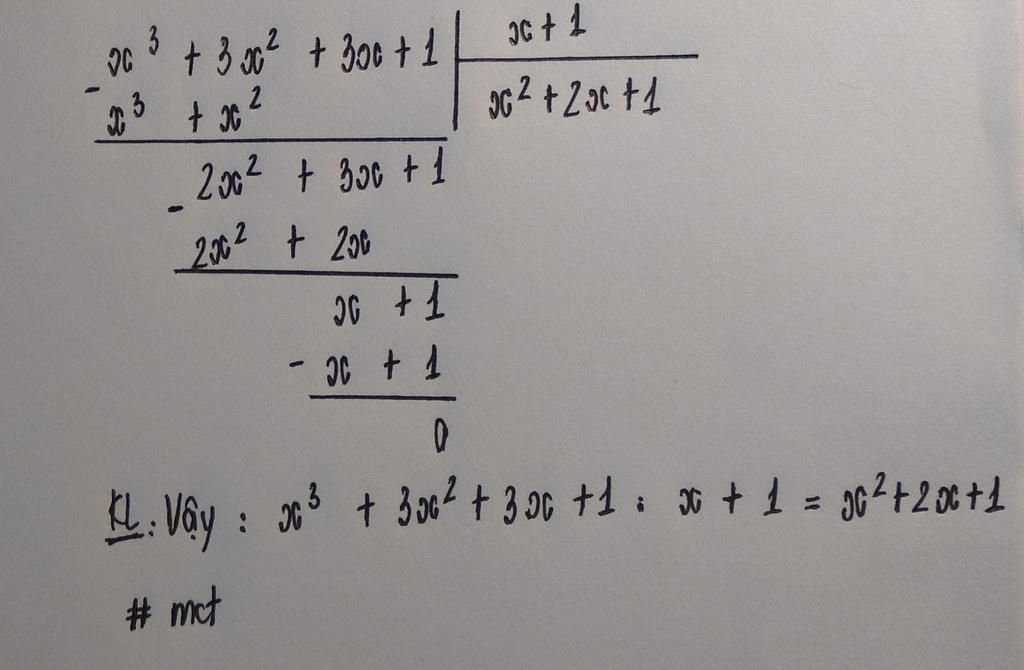 x³ + 3x² + 3x + 1 | x + 1
- x³ + x² | x² + 2x + 1
2x² + 3x + 1
- 2x² + 2x
x + 1
- x + 1
0
KL: Vậy : x³ + 3x² + 3x + 1 : x + 1 = x² + 2x + 1
# mct